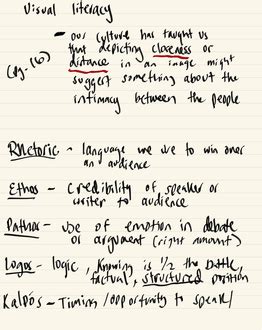 Visual literacy
- our culture has taught us
that depicting closeness or
(pg. 16) distance in an image might
suggest something about the
intimacy between the people
Rhetoric - language we use to win over
an audience
Ethos - Credibility of speaker or
writer to audience
Pathos - use of emotion in debate
or argument (right amount)
Logos - logic, knowing is 1/2 the battle,
factual, structured position
Kairos - Timing/opportunity to speak/